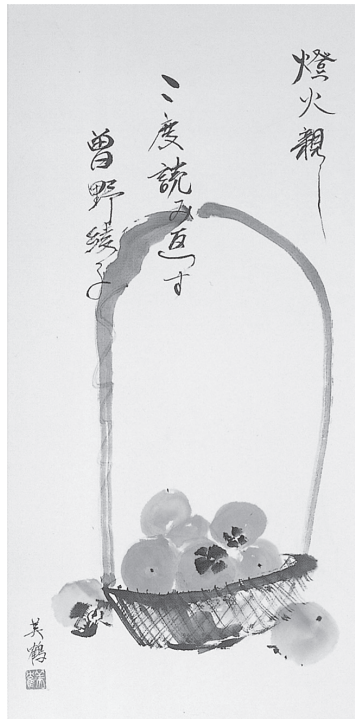 燈火親し
二度読み返す
曽野綾子
英鶴